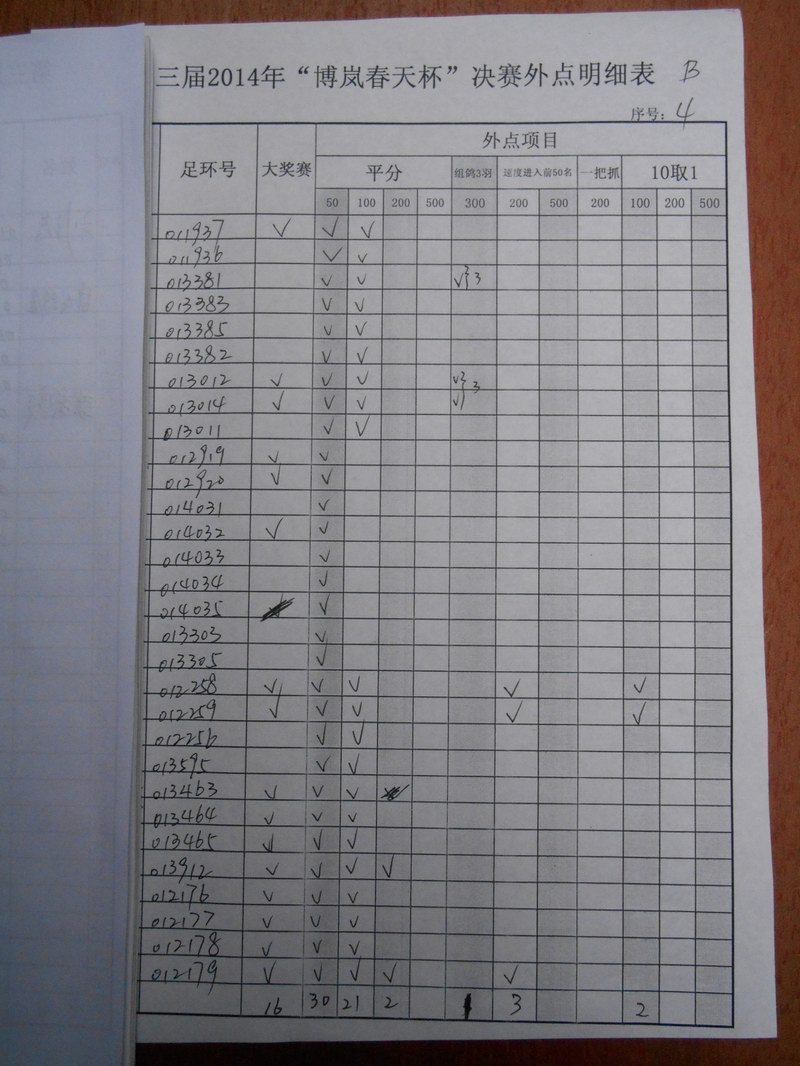 三届2014年“博岚春天杯”决赛外点明细表 B
序号：4
足环号 大奖赛 外点项目
平分 组鸽3羽 速度进入前50名 一把抓 10取1
50 100 200 500 300 200 500 200 100 200 500
011937 ✓ ✓ ✓
011936 ✓ ✓
013381 ✓ ✓ ✓ 3
013383 ✓ ✓
013385 ✓ ✓
013382 ✓ ✓
013012 ✓ ✓ ✓ ✓ 3
013014 ✓ ✓ ✓ ✓
013011 ✓ ✓
012919 ✓ ✓
012920 ✓ ✓
014031 ✓
014032 ✓ ✓
014033 ✓
014034 ✓
014035 ✓
013303 ✓
013305 ✓
012258 ✓ ✓ ✓ ✓ ✓
012259 ✓ ✓ ✓ ✓ ✓
012256 ✓ ✓
013595 ✓ ✓
013463 ✓ ✓ ✓
013464 ✓ ✓ ✓
013465 ✓ ✓ ✓
013912 ✓ ✓ ✓ ✓
012176 ✓ ✓ ✓
012177 ✓ ✓ ✓
012178 ✓ ✓ ✓
012179 ✓ ✓ ✓ ✓ ✓
16 30 21 2 3 2